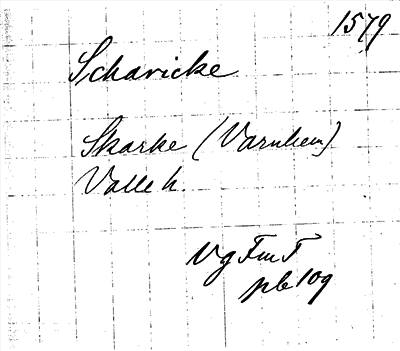 1579
Scharicke
Skarke (Varnhem)
Valle h.
VgFmT
pb 109